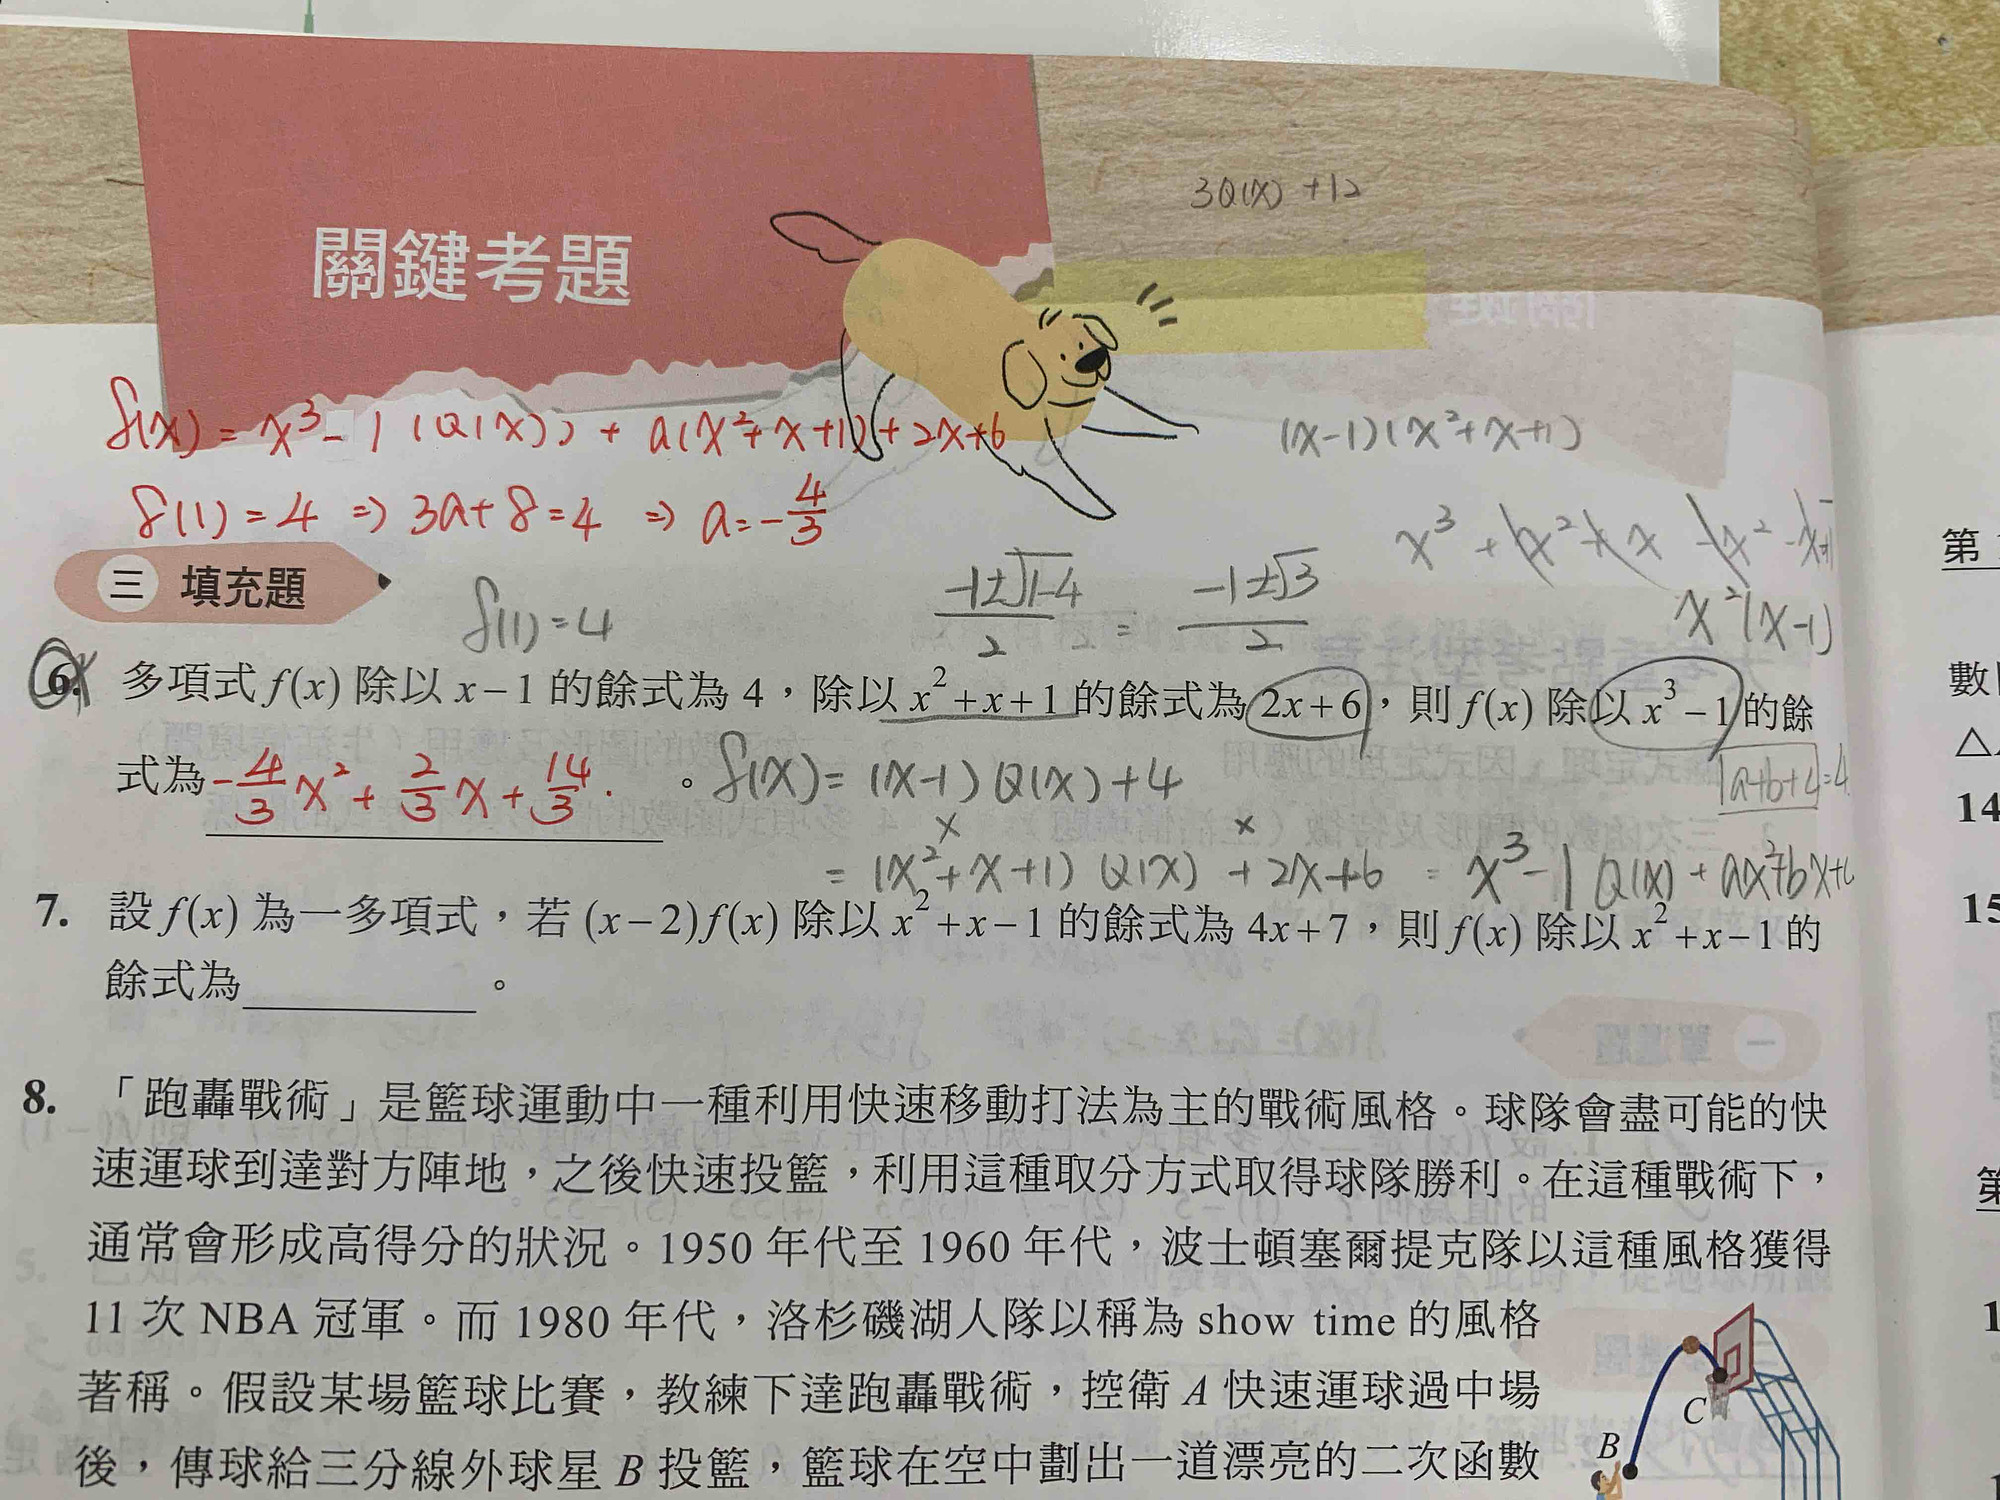 3Q(x) +12
關鍵考題
f(x) = x³-1 (Q(x)) + a(x²+x+1)+2x+6
(x-1)(x²+x+1)
f(1) = 4 => 3a+8=4 => a=-4/3
x³ + x² + x - x² - x
x²(x-1)
三 填充題
f(1)=4
(-1±√1-4)/2 = (-1±√3)/2
6. 多項式 f(x) 除以 x−1 的餘式為 4,除以 x²+x+1 的餘式為 2x+6,則 f(x) 除以 x³−1 的餘
式為 -4/3 x² + 2/3 x + 14/3 。
f(x) = (x-1) Q(x) + 4
a+b+4=4
= (x²+x+1) Q(x) + 2x+6 = x³-1 Q(x) + ax²+bx+
7. 設 f(x) 為一多項式,若 (x−2)f(x) 除以 x²+x−1 的餘式為 4x+7,則 f(x) 除以 x²+x−1 的
餘式為 。
8. 「跑轟戰術」是籃球運動中一種利用快速移動打法為主的戰術風格。球隊會盡可能的快
速運球到達對方陣地,之後快速投籃,利用這種取分方式取得球隊勝利。在這種戰術下,
通常會形成高得分的狀況。1950 年代至 1960 年代,波士頓塞爾提克隊以這種風格獲得
11 次 NBA 冠軍。而 1980 年代,洛杉磯湖人隊以稱為 show time 的風格
著稱。假設某場籃球比賽,教練下達跑轟戰術,控衛 A 快速運球過中場
後,傳球給三分線外球星 B 投籃,籃球在空中劃出一道漂亮的二次函數
C
B
第
數
△
14
15